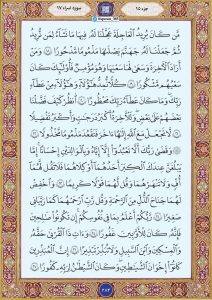 جزء ۱۵
سوره اسراء ۱۷
مَّن كَانَ يُرِيدُ ٱلْعَاجِلَةَ عَجَّلْنَا لَهُۥ فِيهَا مَا نَشَآءُ لِمَن نُّرِيدُ
ثُمَّ جَعَلْنَا لَهُۥ جَهَنَّمَ يَصْلَىٰهَا مَذْمُومًا مَّدْحُورًا ١٨ وَمَنْ
أَرَادَ ٱلْأَخِرَةَ وَسَعَىٰ لَهَا سَعْيَهَا وَهُوَ مُؤْمِنٌ فَأُو۟لَٰٓئِكَ كَانَ
سَعْيُهُم مَّشْكُورًا ١٩ كُلًّا نُّمِدُّ هَٰٓؤُلَآءِ وَهَٰٓؤُلَآءِ مِنْ عَطَآءِ
رَبِّكَ ۚ وَمَا كَانَ عَطَآءُ رَبِّكَ مَحْظُورًا ٢٠ ٱنظُرْ كَيْفَ فَضَّلْنَا
بَعْضَهُمْ عَلَىٰ بَعْضٍ ۚ وَلَلْأَخِرَةُ أَكْبَرُ دَرَجَٰتٍ وَأَكْبَرُ تَفْضِيلًا ٢١
لَّا تَجْعَلْ مَعَ ٱللَّهِ إِلَٰهًا ءَاخَرَ فَتَقْعُدَ مَذْمُومًا مَّخْذُولًا ٢٢
وَقَضَىٰ رَبُّكَ أَلَّا تَعْبُدُوٓا۟ إِلَّآ إِيَّاهُ وَبِٱلْوَٰلِدَيْنِ إِحْسَٰنًا ۚ إِمَّا
يَبْلُغَنَّ عِندَكَ ٱلْكِبَرَ أَحَدُهُمَآ أَوْ كِلَاهُمَا فَلَا تَقُل لَّهُمَآ
أُفٍّ وَلَا تَنْهَرْهُمَا وَقُل لَّهُمَا قَوْلًا كَرِيمًا ٢٣ وَٱخْفِضْ
لَهُمَا جَنَاحَ ٱلذُّلِّ مِنَ ٱلرَّحْمَةِ وَقُل رَّبِّ ٱرْحَمْهُمَا كَمَا رَبَّيَانِى
صَغِيرًا ٢٤ رَّبُّكُمْ أَعْلَمُ بِمَا فِى نُفُوسِكُمْ ۚ إِن تَكُونُوا۟ صَٰلِحِينَ
فَإِنَّهُۥ كَانَ لِلْأَوَّٰبِينَ غَفُورًا ٢٥ وَءَاتِ ذَا ٱلْقُرْبَىٰ حَقَّهُۥ
وَٱلْمِسْكِينَ وَٱبْنَ ٱلسَّبِيلِ وَلَا تُبَذِّرْ تَبْذِيرًا ٢٦ إِنَّ ٱلْمُبَذِّرِينَ
كَانُوٓا۟ إِخْوَٰنَ ٱلشَّيَٰطِينِ ۖ وَكَانَ ٱلشَّيْطَٰنُ لِرَبِّهِۦ كَفُورًا ٢٧